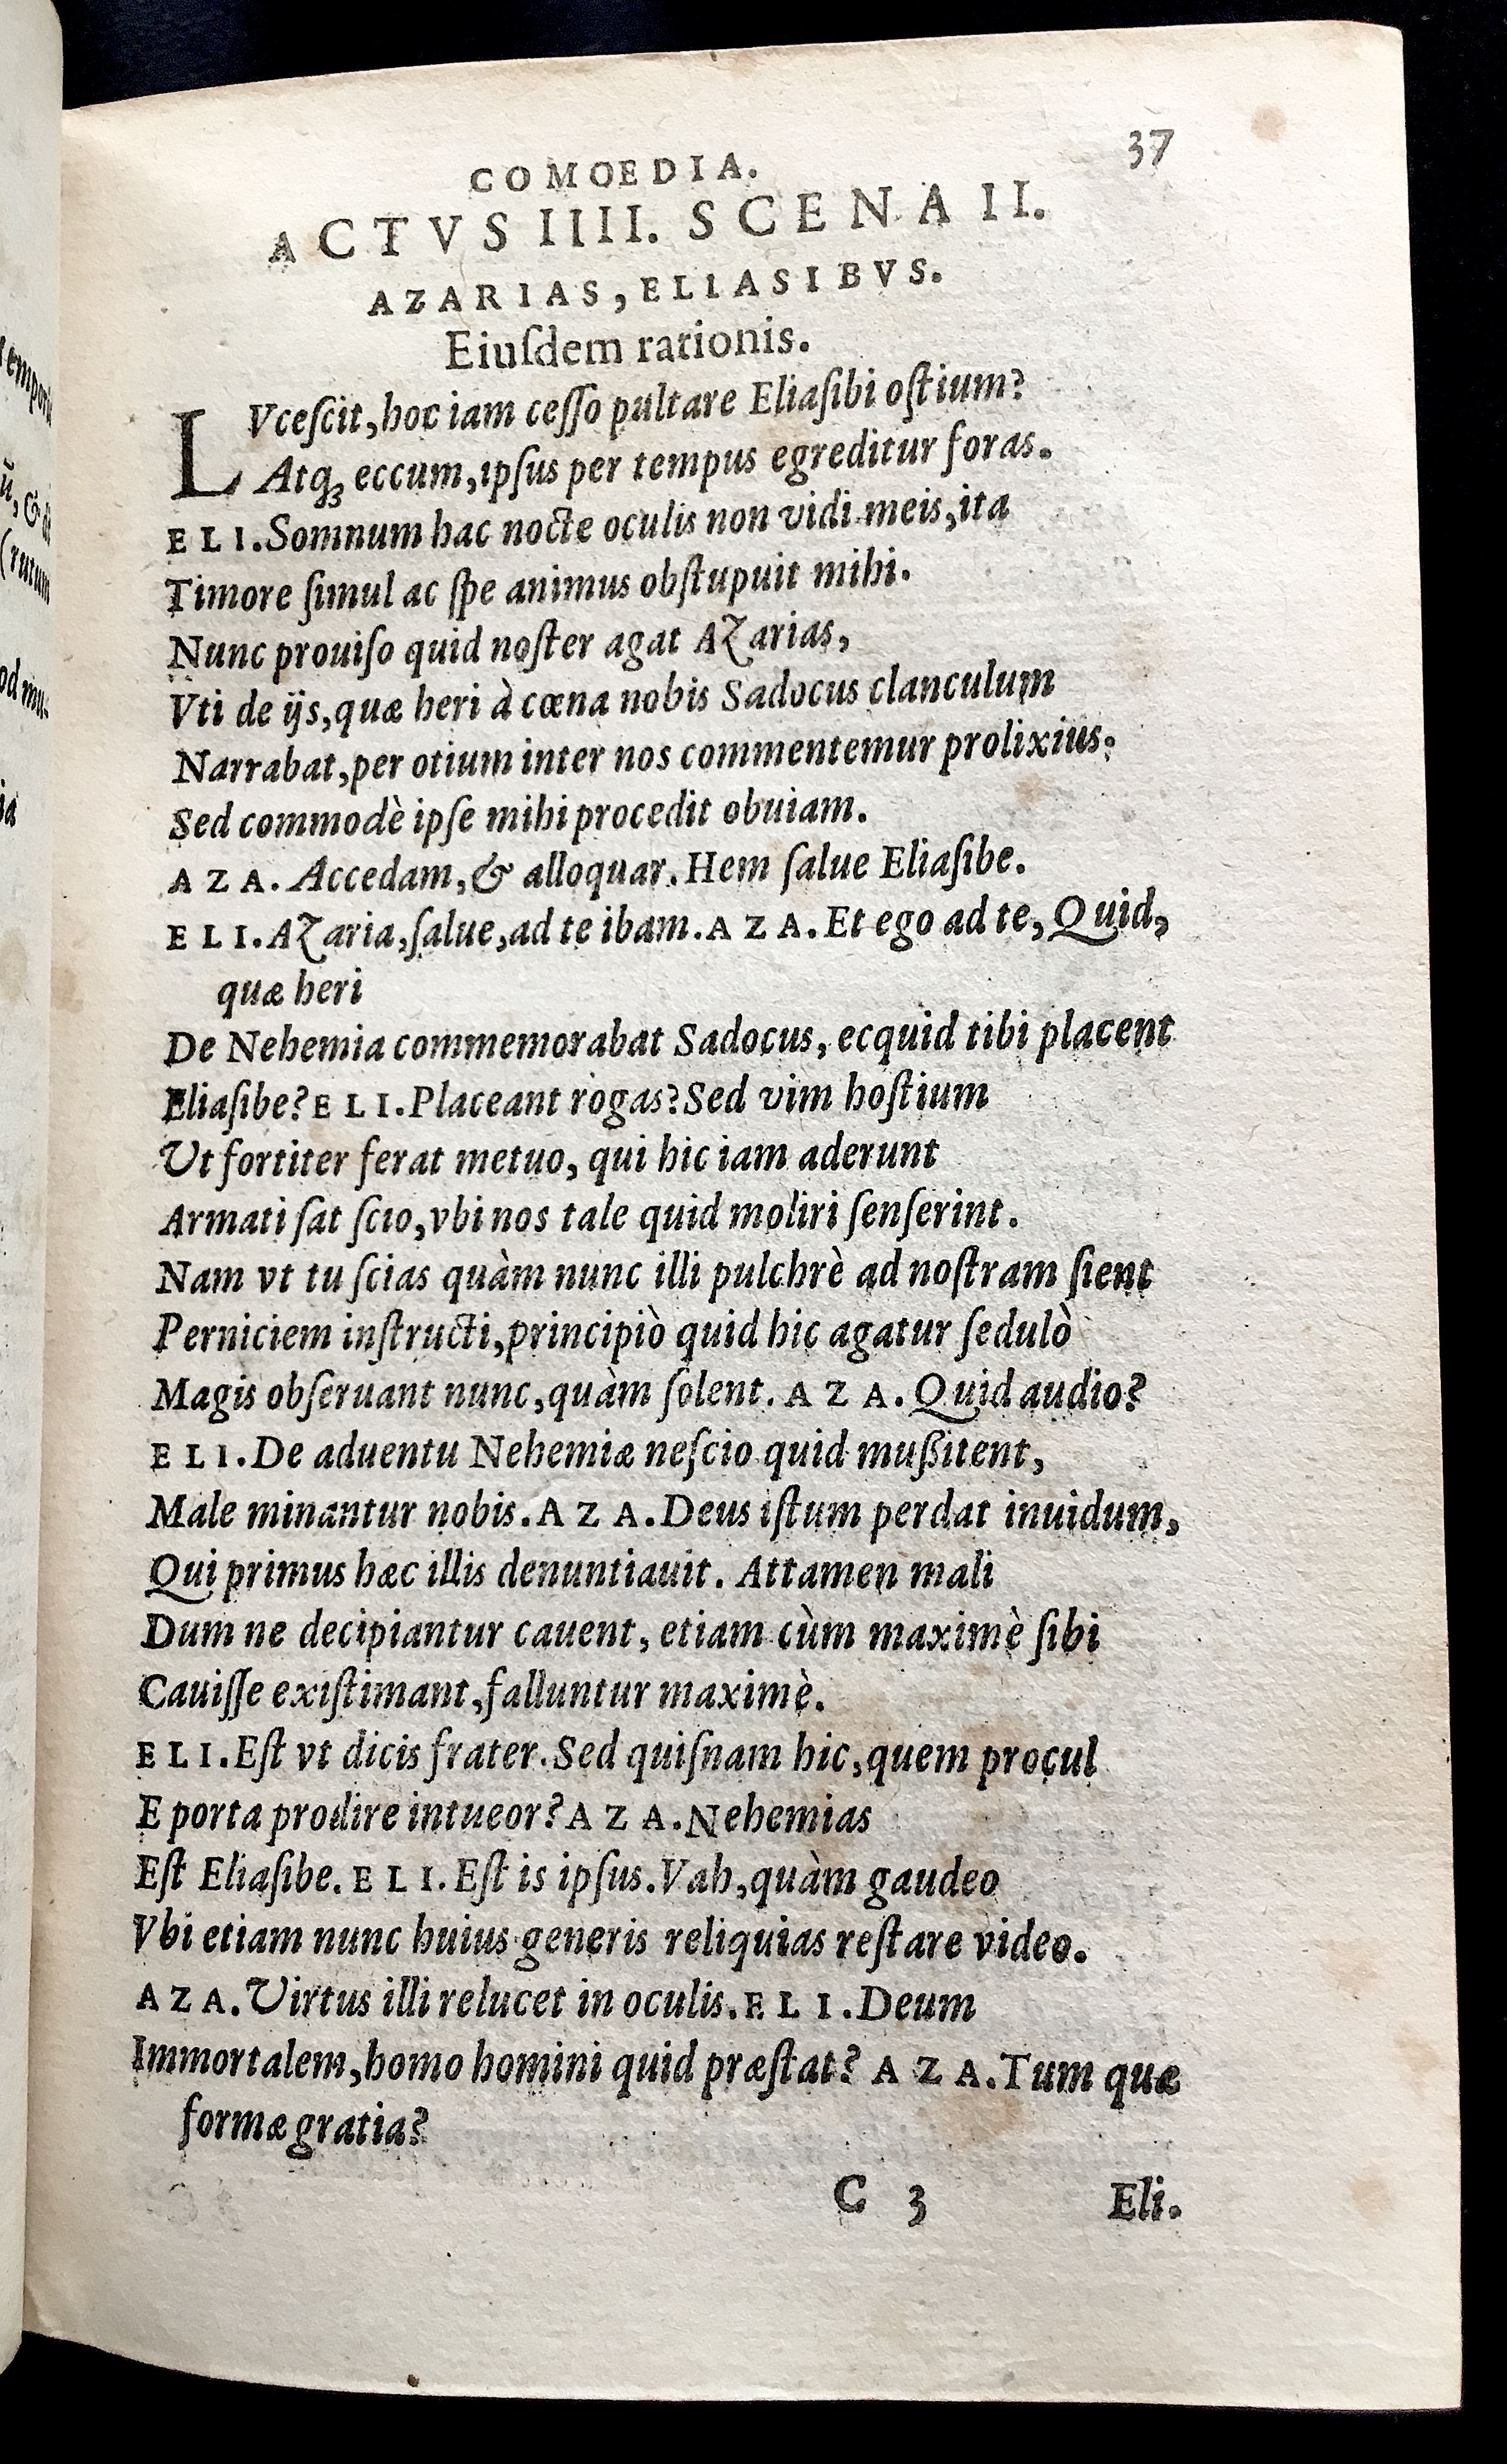 37
COMOEDIA.
ACTVS IIII. SCENA II.
AZARIAS, ELIASIBVS.
Eiuſdem rationis.
LVceſcit, hoc iam ceſſo pultare Eliaſibi oſtium?
Atqꝫ eccum, ipſus per tempus egreditur foras.
ELI. Somnum hac nocte oculis non vidi meis, ita
Timore ſimul ac ſpe animus obſtupuit mihi.
Nunc prouiſo quid noſter agat Azarias,
Vti de ijs, quæ heri à cœna nobis Sadocus clanculum
Narrabat, per otium inter nos commentemur prolixius.
Sed commodè ipſe mihi procedit obuiam.
AZA. Accedam, & alloquar. Hem ſalue Eliaſibe.
ELI. Azaria, ſalue, ad te ibam. AZA. Et ego ad te, Quid,
quæ heri
De Nehemia commemorabat Sadocus, ecquid tibi placent
Eliaſibe? ELI. Placeant rogas? Sed vim hoſtium
Ut fortiter ferat metuo, qui hic iam aderunt
Armati ſat ſcio, vbi nos tale quid moliri ſenſerint.
Nam vt tu ſcias quàm nunc illi pulchrè ad noſtram ſient
Perniciem inſtructi, principiò quid hic agatur ſedulò
Magis obſeruant nunc, quàm ſolent. AZA. Quid audio?
ELI. De aduentu Nehemiæ neſcio quid mußitent,
Male minantur nobis. AZA. Deus iſtum perdat inuidum,
Qui primus hæc illis denuntiauit. Attamen mali
Dum ne decipiantur cauent, etiam cùm maximè ſibi
Cauiſſe exiſtimant, falluntur maximè.
ELI. Eſt vt dicis frater. Sed quiſnam hic, quem procul
E porta prodire intueor? AZA. Nehemias
Eſt Eliaſibe. ELI. Eſt is ipſus. Vah, quàm gaudeo
Vbi etiam nunc huius generis reliquias reſtare video.
AZA. Virtus illi relucet in oculis. ELI. Deum
Immortalem, homo homini quid præſtat? AZA. Tum quæ
formæ gratia?
C 3 Eli.